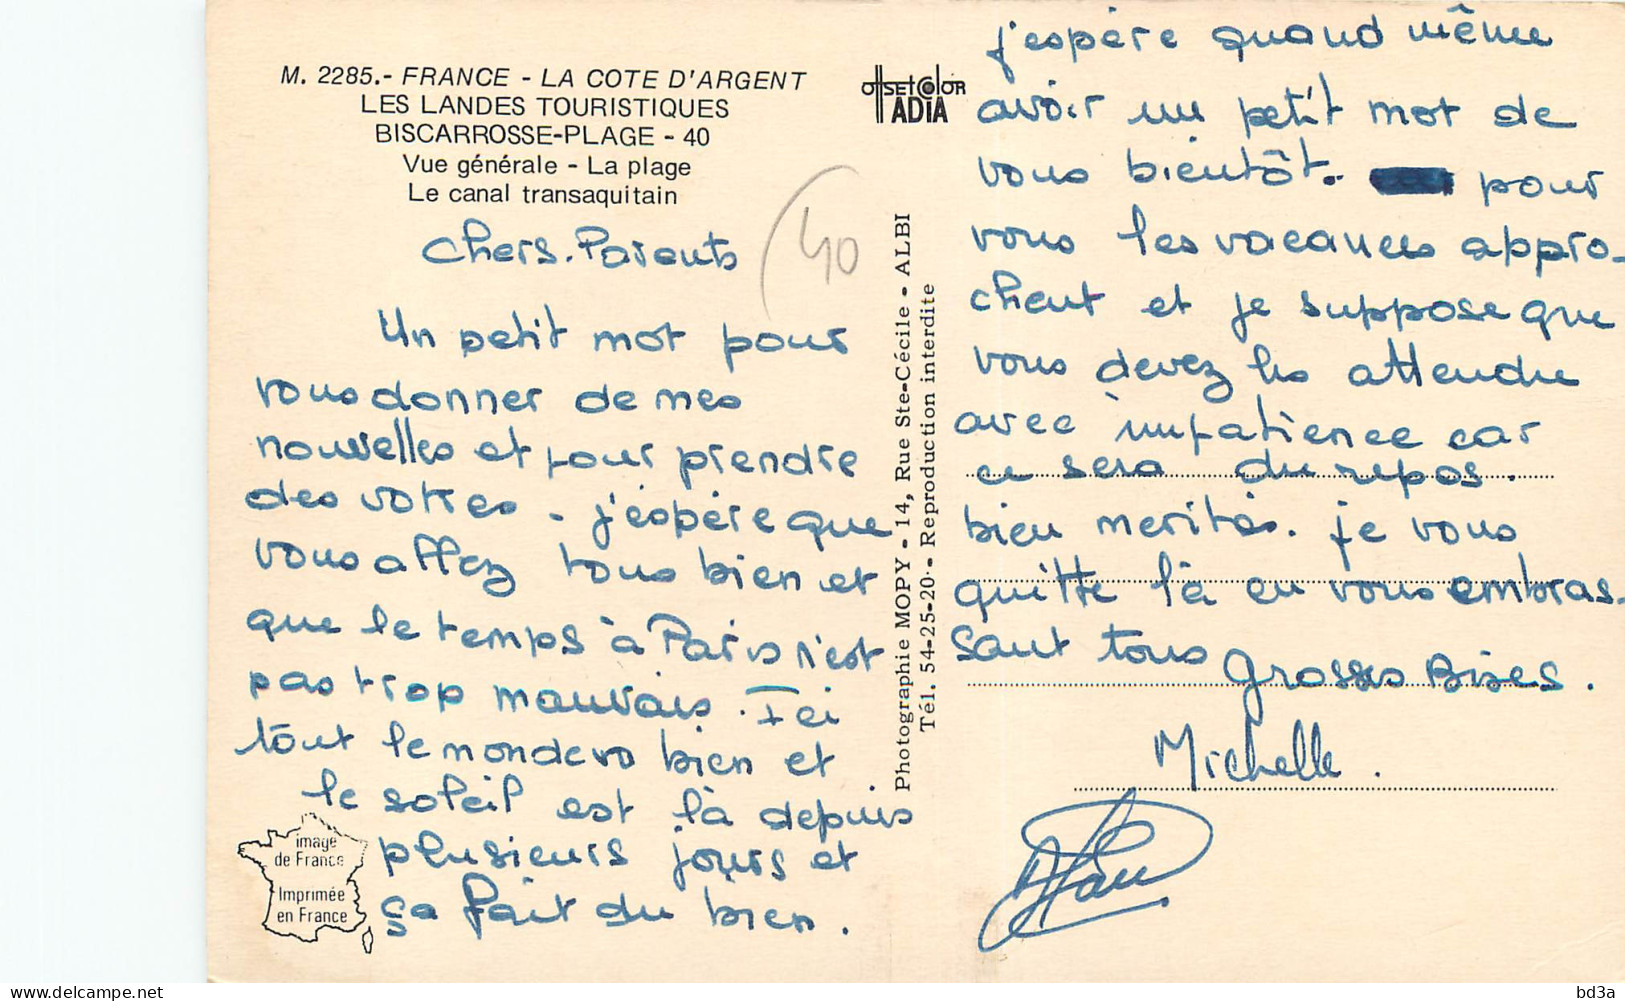 M. 2285.- FRANCE - LA COTE D'ARGENT
LES LANDES TOURISTIQUES
BISCARROSSE-PLAGE - 40
Vue générale - La plage
Le canal transaquitain
OffsetColor
ADIA
40
Chers. Parents
Un petit mot pour
vous donner de mes
nouvelles et pour prendre
des votres. j'éspère que
vous allez tous bien et
que le temps à Paris n'est
pas trop mauvais. Ici
tout le monde va bien et
le soleil est là depuis
plusieurs jours et
ça fait du bien.
image
de France
Imprimée
en France
Photographie MOPY - 14, Rue Ste-Cécile - ALBI
Tél. 54-25-20 - Reproduction interdite
j'espère quand même
avoir un petit mot de
vous bientôt. pour
vous les vacances appro-
chent et je suppose que
vous devez les attendre
avec impatience car
ce sera du repos.
bien merités. je vous
quitte là en vous embras-
sant tous
grosses Bises.
Michelle.
bd3a